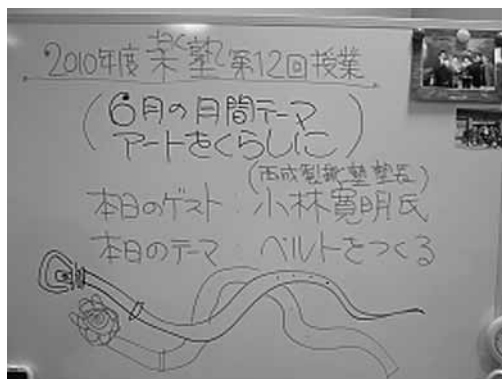 2010年度 楽塾 第12回授業
(6月の月間テーマ
アートをくらしに)
(西成製靴塾 塾長)
本日のゲスト:小林寛明氏
本日のテーマ:ベルトをつくる